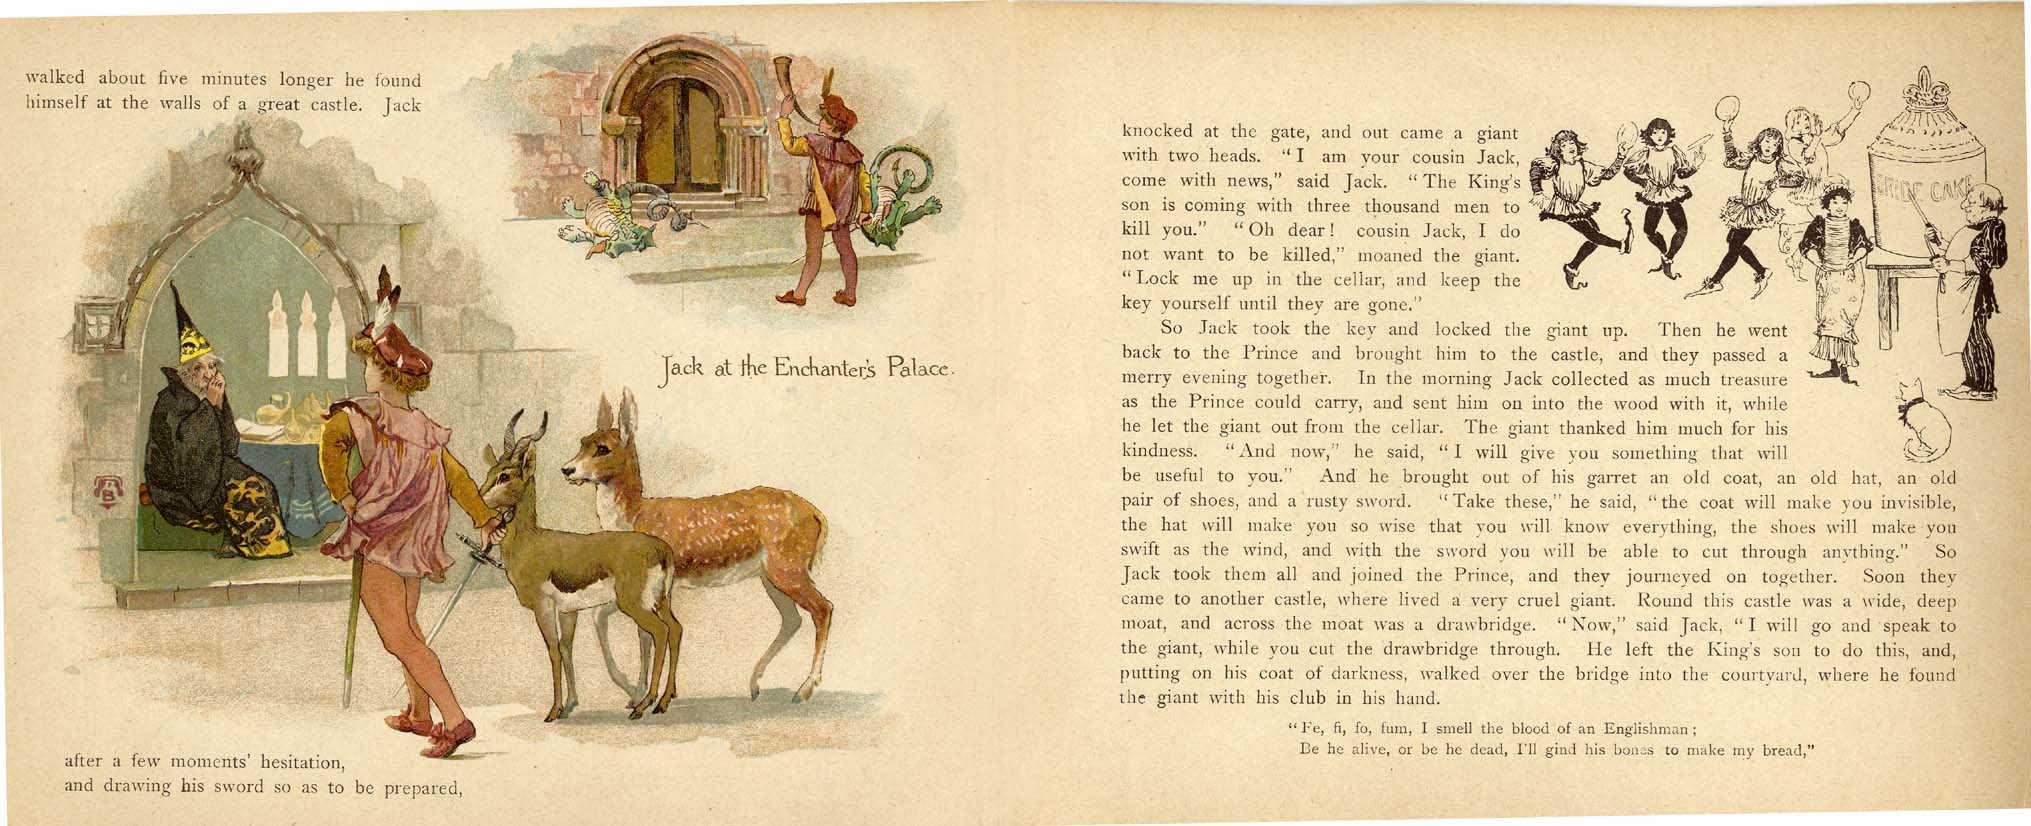 walked about five minutes longer he found
himself at the walls of a great castle. Jack
Jack at the Enchanter's Palace.
AB
after a few moments' hesitation,
and drawing his sword so as to be prepared,
knocked at the gate, and out came a giant
with two heads. "I am your cousin Jack,
come with news," said Jack. "The King's
son is coming with three thousand men to
kill you." "Oh dear! cousin Jack, I do
not want to be killed," moaned the giant.
"Lock me up in the cellar, and keep the
key yourself until they are gone."
So Jack took the key and locked the giant up. Then he went
back to the Prince and brought him to the castle, and they passed a
merry evening together. In the morning Jack collected as much treasure
as the Prince could carry, and sent him on into the wood with it, while
he let the giant out from the cellar. The giant thanked him much for his
kindness. "And now," he said, "I will give you something that will
be useful to you." And he brought out of his garret an old coat, an old hat, an old
pair of shoes, and a rusty sword. "Take these," he said, "the coat will make you invisible,
the hat will make you so wise that you will know everything, the shoes will make you
swift as the wind, and with the sword you will be able to cut through anything." So
Jack took them all and joined the Prince, and they journeyed on together. Soon they
came to another castle, where lived a very cruel giant. Round this castle was a wide, deep
moat, and across the moat was a drawbridge. "Now," said Jack, "I will go and speak to
the giant, while you cut the drawbridge through. He left the King's son to do this, and,
putting on his coat of darkness, walked over the bridge into the courtyard, where he found
the giant with his club in his hand.
"Fe, fi, fo, fum, I smell the blood of an Englishman;
Be he alive, or be he dead, I'll gind his bones to make my bread,"
BRIDE CAKE